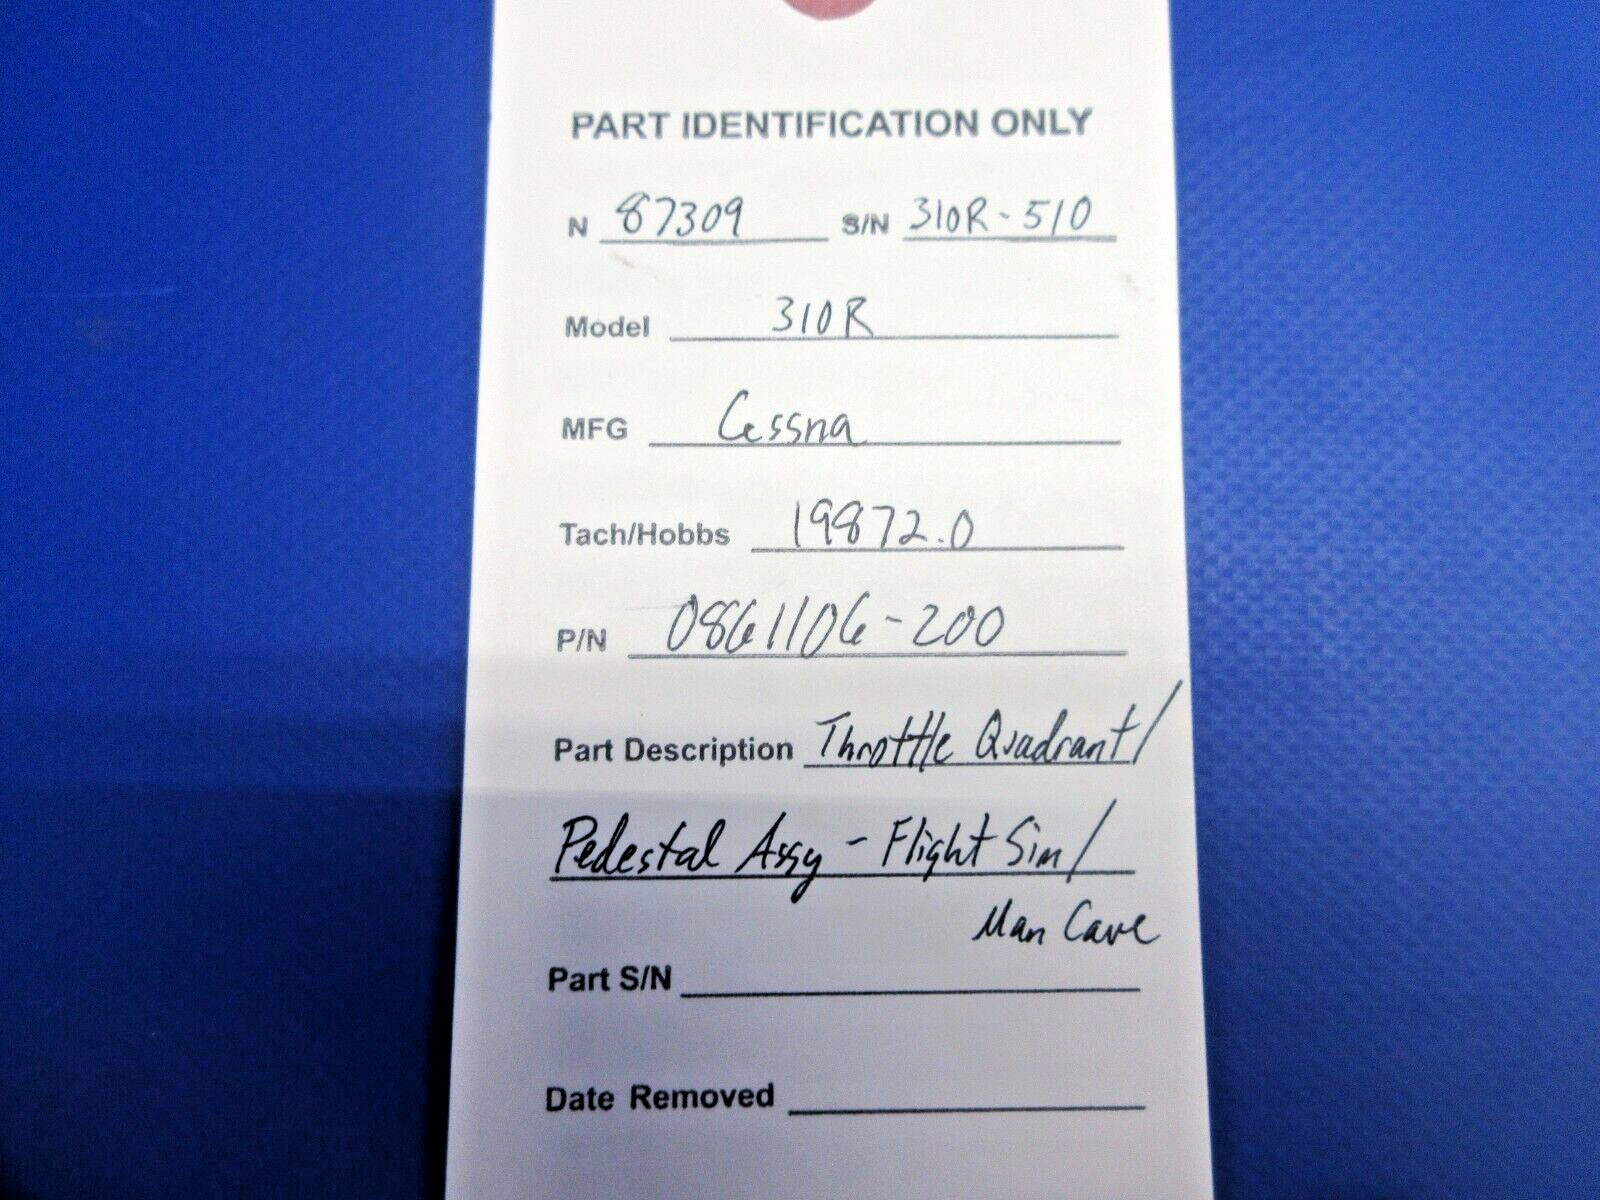 PART IDENTIFICATION ONLY
N 87309 S/N 310R-510
Model 310R
MFG Cessna
Tach/Hobbs 19872.0
P/N 0861106-200
Part Description Throttle Quadrant/
Pedestal Assy - Flight Sim/
Man Cave
Part S/N
Date Removed